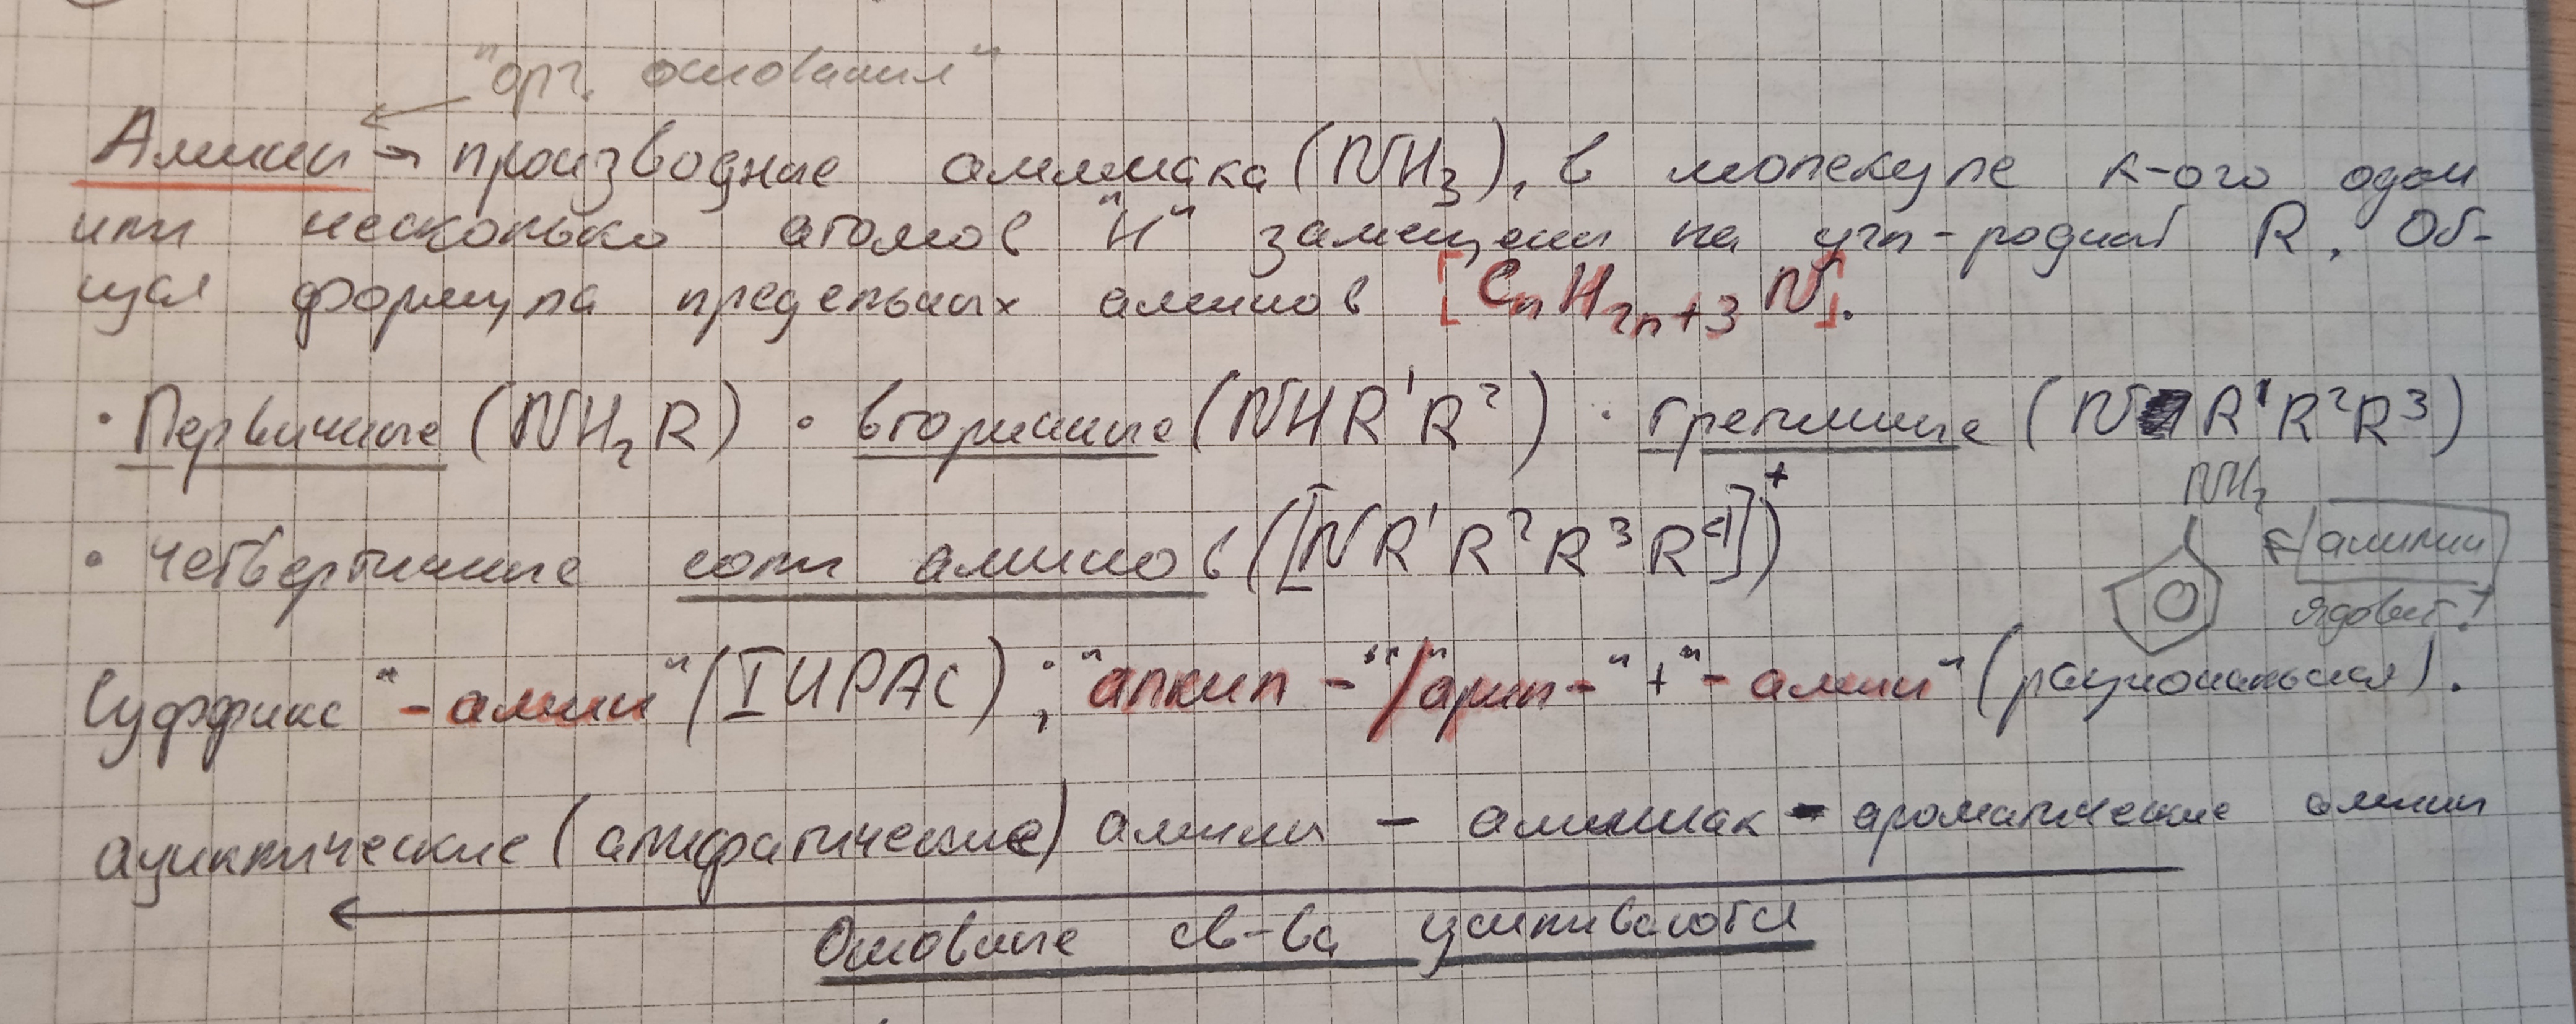 "орг. основания"
Амины → производные аммиака (NH₃), в молекуле к-ого один
или несколько атомов "H" замещены на угл-родный R. Об-
щая формула предельных аминов [CₙH₂ₙ₊₃N].
· Первичные (NH₂R) · вторичные (NHR¹R²) · третичные (NR¹R²R³)
NH₂
· четвертичные соли аминов ([NR¹R²R³R⁴])⁺
← анилин
ядовит!
Суффикс "-амин" (IUPAC); "алкил-"/"арил-" + "-амин" (рациональная).
ациклические (алифатические) амины - аммиак - ароматические амины
Основные св-ва усиливаются